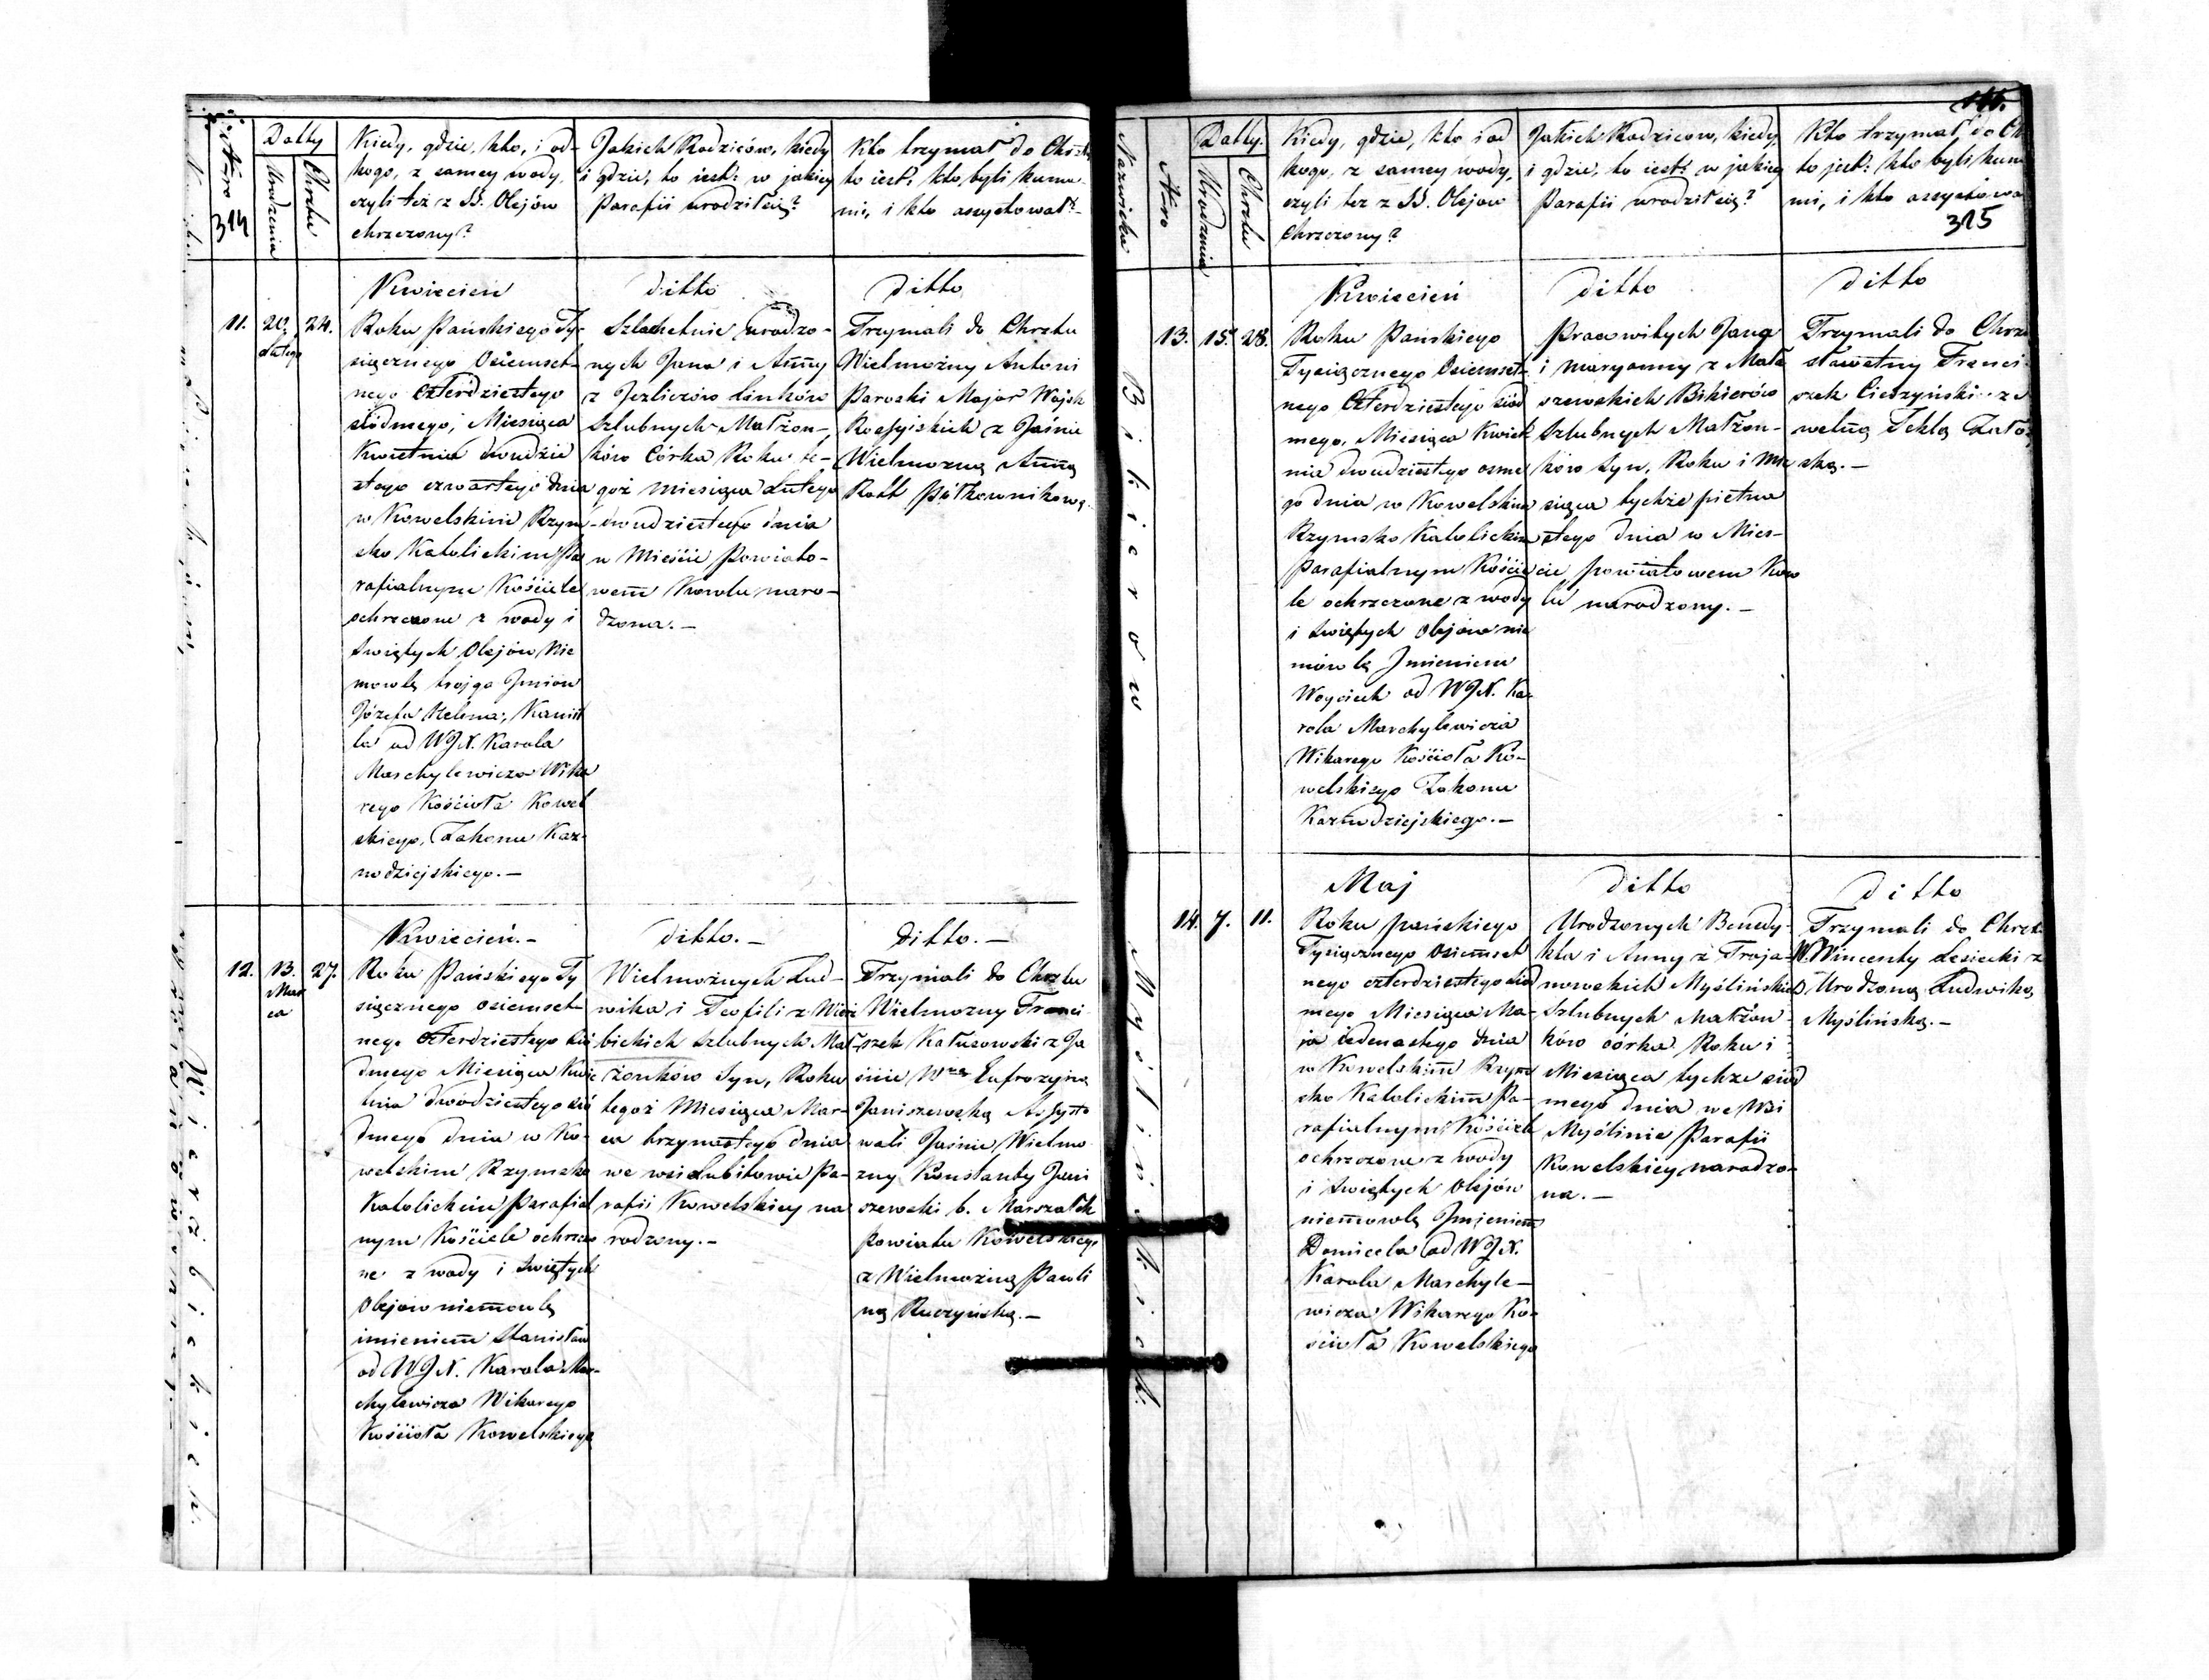 Nro
314
Datty
Urodzenia
Chrztu
Kiedy, gdzie, kto, i od
kogo, z samey wody,
czyli też z SS. Olejów
chrzczony?
Jakich Rodziców, kiedy
i gdzie, to iest: w jakiey
Parafii urodził się?
Kto trzymał do Chrztu
to iest, kto byli kumo
mi, i kto assystował?
Kwiecień
ditto
ditto
11.
20.
Lutego
24.
Roku Pańskiego Ty-
siącznego Osiemset-
nego Czterdziestego
siódmego, Miesiąca
Kwietnia dwudzie
stego czwartego dnia
w Kowelskim Rzym-
sko Katolickim Pa
rafialnym Kościele
ochrzczone z wody i
Świętych Olejów Nie
mowlę trojga Imion
Józefa Helena, Kamil
la od WJX. Karola
Marchylewicza Wika
rego Kościoła Kowel
skiego, Zakonu Kaz-
nodziejskiego.—
Szlachetnie urodzo-
nych Jana i Anny
z Linków
Szlubnych Małżon-
ków Córka Roku te-
goż Miesiąca Lutego
dwudziestego dnia
w Mieście Powiato-
wem Kowlu naro-
dzona.—
Trzymali do Chrztu
Wielmożny Antoni
Paroski Major Wojsk
Rossyiskich z Jaśnie
Wielmożną Anną
Rott Półkownikową.
Kwiecień.—
ditto.—
ditto.—
12.
13.
Mar
ca
27.
Roku Pańskiego Ty
siącznego osiemset
nego Czterdziestego sió
dmego Miesiąca Kwie
tnia dwódziestego sió
dmego dnia w Ko-
welskim Rzymsko
Katolickim Parafial
nym Kościele ochrzczo
ne z wody i Świętych
Olejów niemowlę
imieniem Stanisław
od WJX. Karola Mar-
chylewicza Wikarego
Kościoła Kowelskiego
Wielmożnych Lud-
wika i Teofili z Wierz
bickich Szlubnych Mał-
żonków Syn, Roku
tegoż Miesiąca Mar-
ca trzynastego dnia
we wsi Lubitowie Pa-
rafii Kowelskiey na
rodzony.—
Trzymali do Chrztu
Wielmożny Franci
szek Katusowski z Ja
śnie Wną Eufrozyną
Janiszewską Assysto
wali Jaśnie Wielmo
żny Konstanty Jani
szewski b. Marszałek
Powiatu Kowelskiego
z Wielmożną Pauli
ną Ruczyńską.—
Wierzbickich
Nazwiska
Nro
Datty.
Urodzenia
Chrztu
Kiedy, gdzie, kto i od
kogo, z samey wody,
czyli też z SS. Olejów
Chrzczony?
Jakich Rodziców, kiedy,
i gdzie, to iest: w jakiey
Parafii urodził się?
Kto trzymał do Ch
to jest: kto byli kum
mi, i kto assystowa
315
Kwiecień
ditto
ditto
13.
15.
28.
Bikierow
Roku Pańskiego
Tysiącznego Osiemset-
nego Czterdziestego siód
mego, Miesiąca Kwiet
nia dwudziestego osme
go dnia w Kowelskim
Rzymsko Katolickim
Parafialnym Koście
le ochrzczone z wody
i Świętych Olejów nie
mówlę Imieniem
Woyciech od WJX. Ka-
rola Marchylewicza
Wikarego Kościoła Ko-
welskiego Zakonu
Kaznodziejskiego.—
Pracowitych Jana
i Maryanny z Mata
szewskich Bikierów
Szlubnych Małżon-
ków Syn, Roku i Mie
siąca tychże piętna
stego dnia w Mieś-
cie powiatowem Kow
lu narodzony.—
Trzymali do Chrz
sławetny Franci-
szek Cieszyński z
wetną Teklą
ską.—
Maj
ditto
ditto
14.
7.
11.
Myślińskich
Roku pańskiego
Tysiącznego osiemset
nego czterdziestego siód
mego Miesiąca Ma-
ja iedenastego dnia
w Kowelskim Rzym
sko Katolickim Pa-
rafialnym Kościele
ochrzczone z wody
i Świętych Olejów
niemowlę Imieniem
Domicela od WJX.
Karola Marchyle-
wicza Wikarego Ko-
ścioła Kowelskiego
Urodzonych Benedy-
kta i Anny z Troja-
nowskich Myślińskich
Szlubnych Małżon-
ków córka Roku i
Miesiąca tychże siód
mego dnia we Wsi
Myślinie Parafii
Kowelskiey narodzo-
na.—
Trzymali do Chrzt
W. Wincenty Lesiecki z
Urodzoną Ludwiką
Myślińską.—